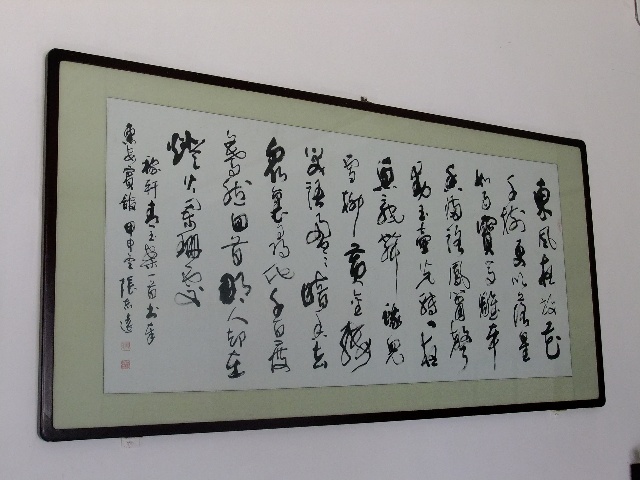 東風夜放花
千樹更吹落星
如雨寶馬雕車
香滿路鳳簫聲
動玉壺光轉一夜
魚龍舞蛾兒
雪柳黃金縷
笑語盈盈暗香去
眾裏尋他千百度
驀然回首那人却在
燈火闌珊處
稼軒青玉案一首書奉
東安賓館 甲申 張志遠